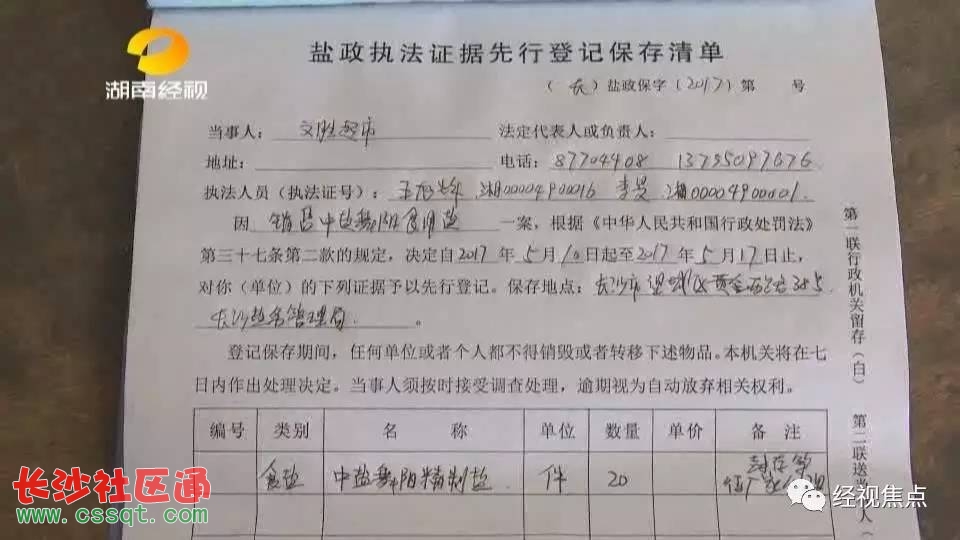 湖南经视
盐政执法证据先行登记保存清单
（长）盐政保字（2017）第 号
当事人： 文胜超市 法定代表人或负责人：
地址： 电话：87704408 13755097676
执法人员（执法证号）： 湘00004900016 李 湘00004900001.
因 销售中盐舞阳食用盐 一案，根据《中华人民共和国行政处罚法》
第三十七条第二款的规定，决定自2017年5月10日起至2017年5月17日止，
对你（单位）的下列证据予以先行登记。保存地点：长沙市望城区黄金西路385号
长沙盐务管理局 。
登记保存期间，任何单位或者个人都不得销毁或者转移下述物品。本机关将在七
日内作出处理决定。当事人须按时接受调查处理，逾期视为自动放弃相关权利。
编号 类别 名 称 单位 数量 单价 备 注
食盐 中盐舞阳精制盐 件 20
第一联行政机关留存（白）
第二联送当 人（
长沙社区通
www.cssqt.com
经视焦点